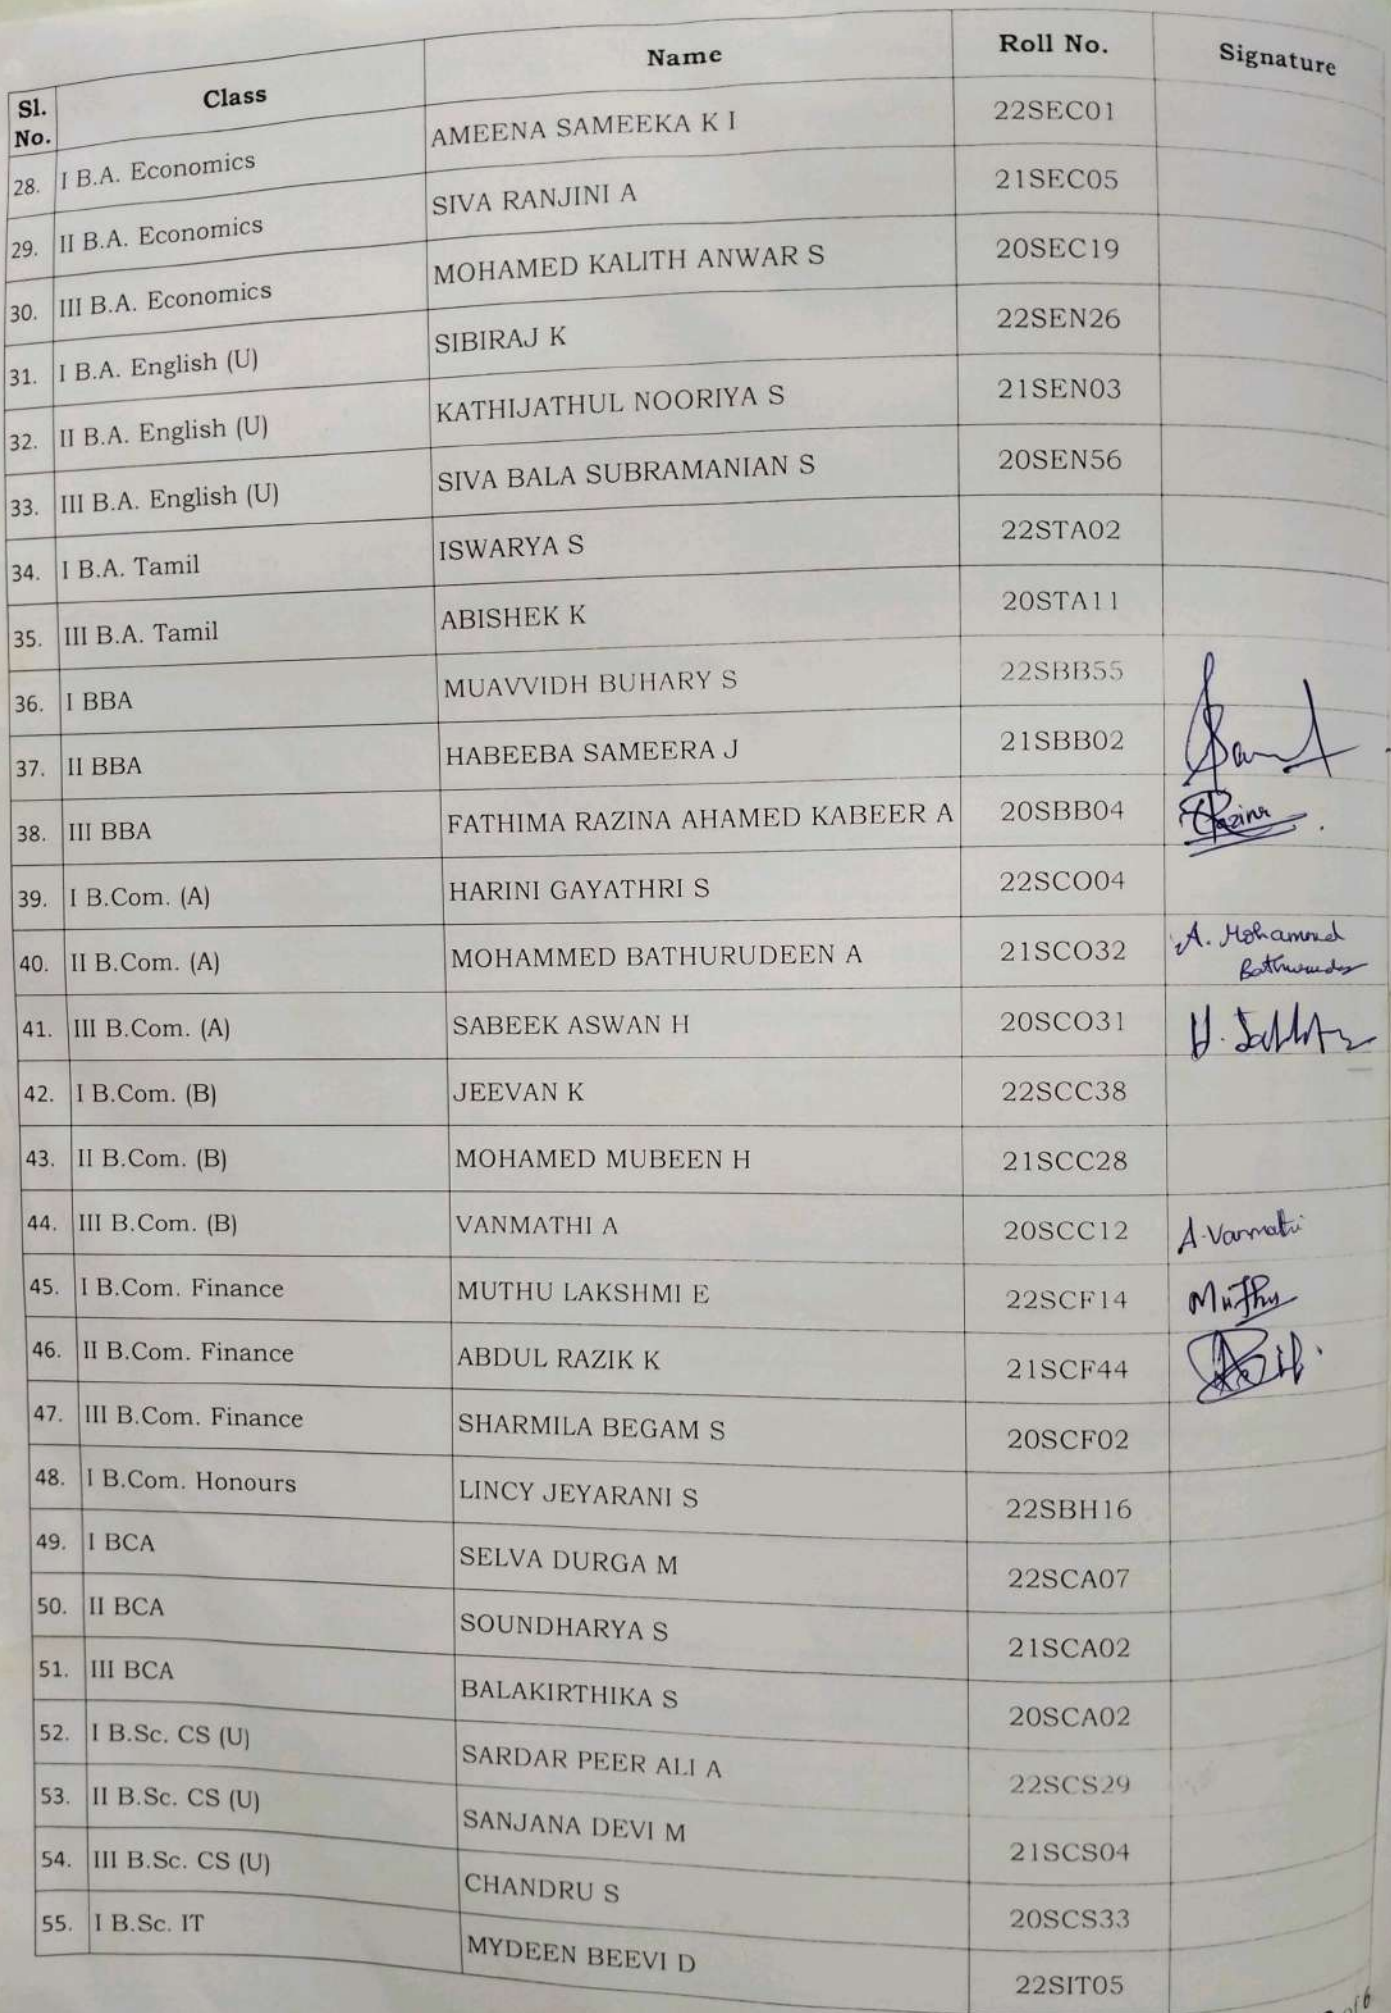 Sl. No. Class Name Roll No. Signature
28. I B.A. Economics AMEENA SAMEEKA K I 22SEC01
29. II B.A. Economics SIVA RANJINI A 21SEC05
30. III B.A. Economics MOHAMED KALITH ANWAR S 20SEC19
31. I B.A. English (U) SIBIRAJ K 22SEN26
32. II B.A. English (U) KATHIJATHUL NOORIYA S 21SEN03
33. III B.A. English (U) SIVA BALA SUBRAMANIAN S 20SEN56
34. I B.A. Tamil ISWARYA S 22STA02
35. III B.A. Tamil ABISHEK K 20STA11
36. I BBA MUAVVIDH BUHARY S 22SBB55
37. II BBA HABEEBA SAMEERA J 21SBB02
38. III BBA FATHIMA RAZINA AHAMED KABEER A 20SBB04
39. I B.Com. (A) HARINI GAYATHRI S 22SCO04
40. II B.Com. (A) MOHAMMED BATHURUDEEN A 21SCO32 A. Mohammed
41. III B.Com. (A) SABEEK ASWAN H 20SCO31
42. I B.Com. (B) JEEVAN K 22SCC38
43. II B.Com. (B) MOHAMED MUBEEN H 21SCC28
44. III B.Com. (B) VANMATHI A 20SCC12 A. Vanmathi
45. I B.Com. Finance MUTHU LAKSHMI E 22SCF14 Muthu
46. II B.Com. Finance ABDUL RAZIK K 21SCF44
47. III B.Com. Finance SHARMILA BEGAM S 20SCF02
48. I B.Com. Honours LINCY JEYARANI S 22SBH16
49. I BCA SELVA DURGA M 22SCA07
50. II BCA SOUNDHARYA S 21SCA02
51. III BCA BALAKIRTHIKA S 20SCA02
52. I B.Sc. CS (U) SARDAR PEER ALI A 22SCS29
53. II B.Sc. CS (U) SANJANA DEVI M 21SCS04
54. III B.Sc. CS (U) CHANDRU S 20SCS33
55. I B.Sc. IT MYDEEN BEEVI D 22SIT05